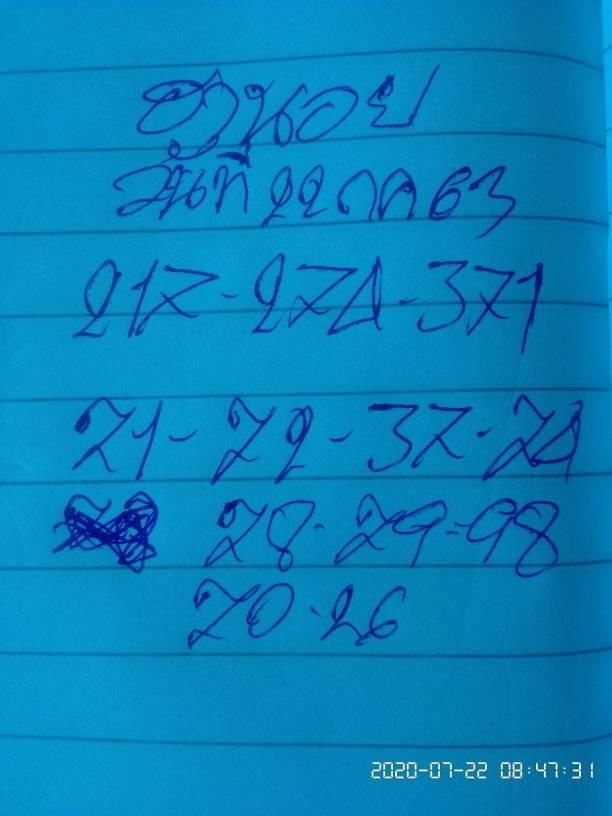 ฮานอย
วันที่ 22 กค 63
217-274-371
71-72-37-74
78-79=98
70-26
2020-07-22 08:47:31